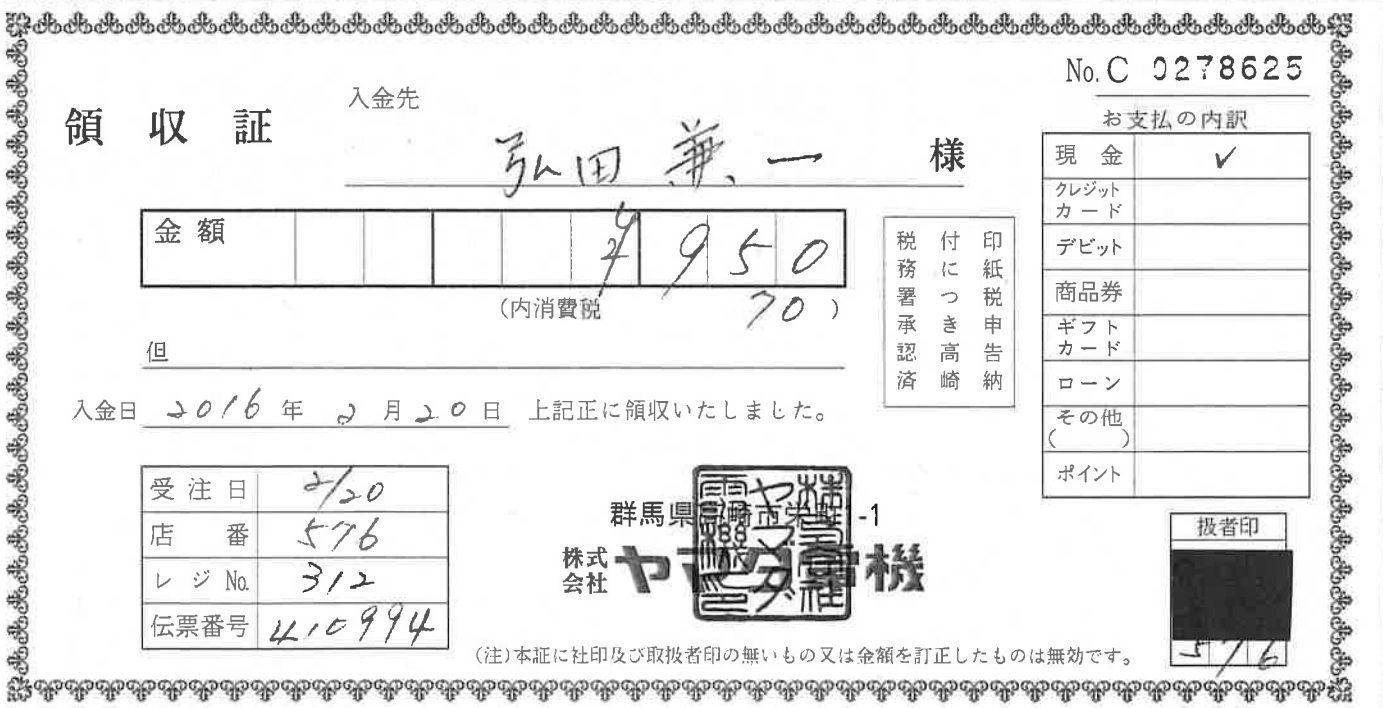 No. C 0278625
領収証
入金先
弘田 兼一 様
金額 ¥950
(内消費税 70)
但
入金日 2016年 2月20日 上記正に領収いたしました。
印紙税申告納
付につき高崎
税務署承認済
お支払の内訳
現金 ✓
クレジットカード
デビット
商品券
ギフトカード
ローン
その他( )
ポイント
受注日 2/20
店番 576
レジNo. 312
伝票番号 410994
群馬県高崎市栄町 -1
株式会社 ヤマダ電機
扱者印
576
(注)本証に社印及び取扱者印の無いもの又は金額を訂正したものは無効です。